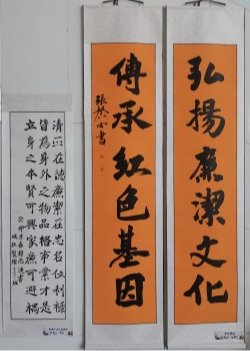 弘揚廉潔文化
傳承紅色基因
清正在德廉潔在志名位利祿
皆為身外之物品格事業才是
立身之本賢可興家廉可避禍